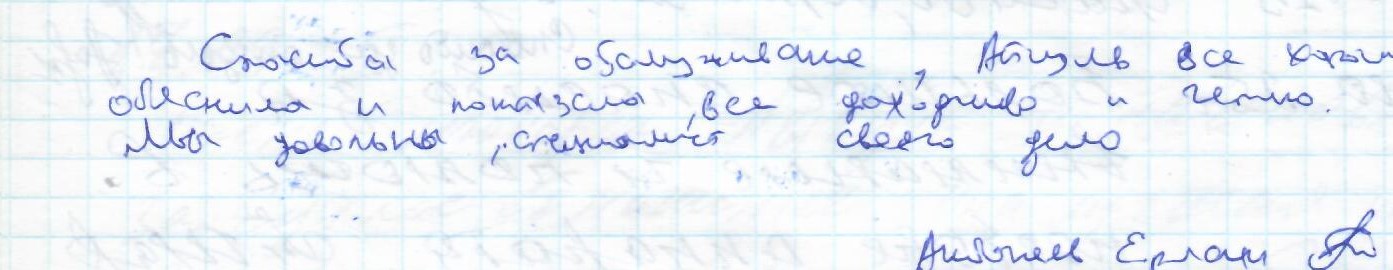 Спасибо за обслуживание, Айгуль все хорошо
обяснила и показала, все доходчиво и четко.
Мы довольны, специалист своего дело
Ерлан